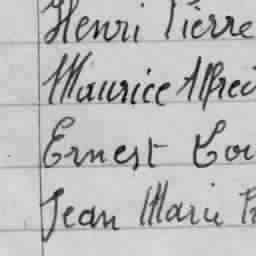 Henri Pierre
Maurice Alfred
Ernest Lou
Jean Marie